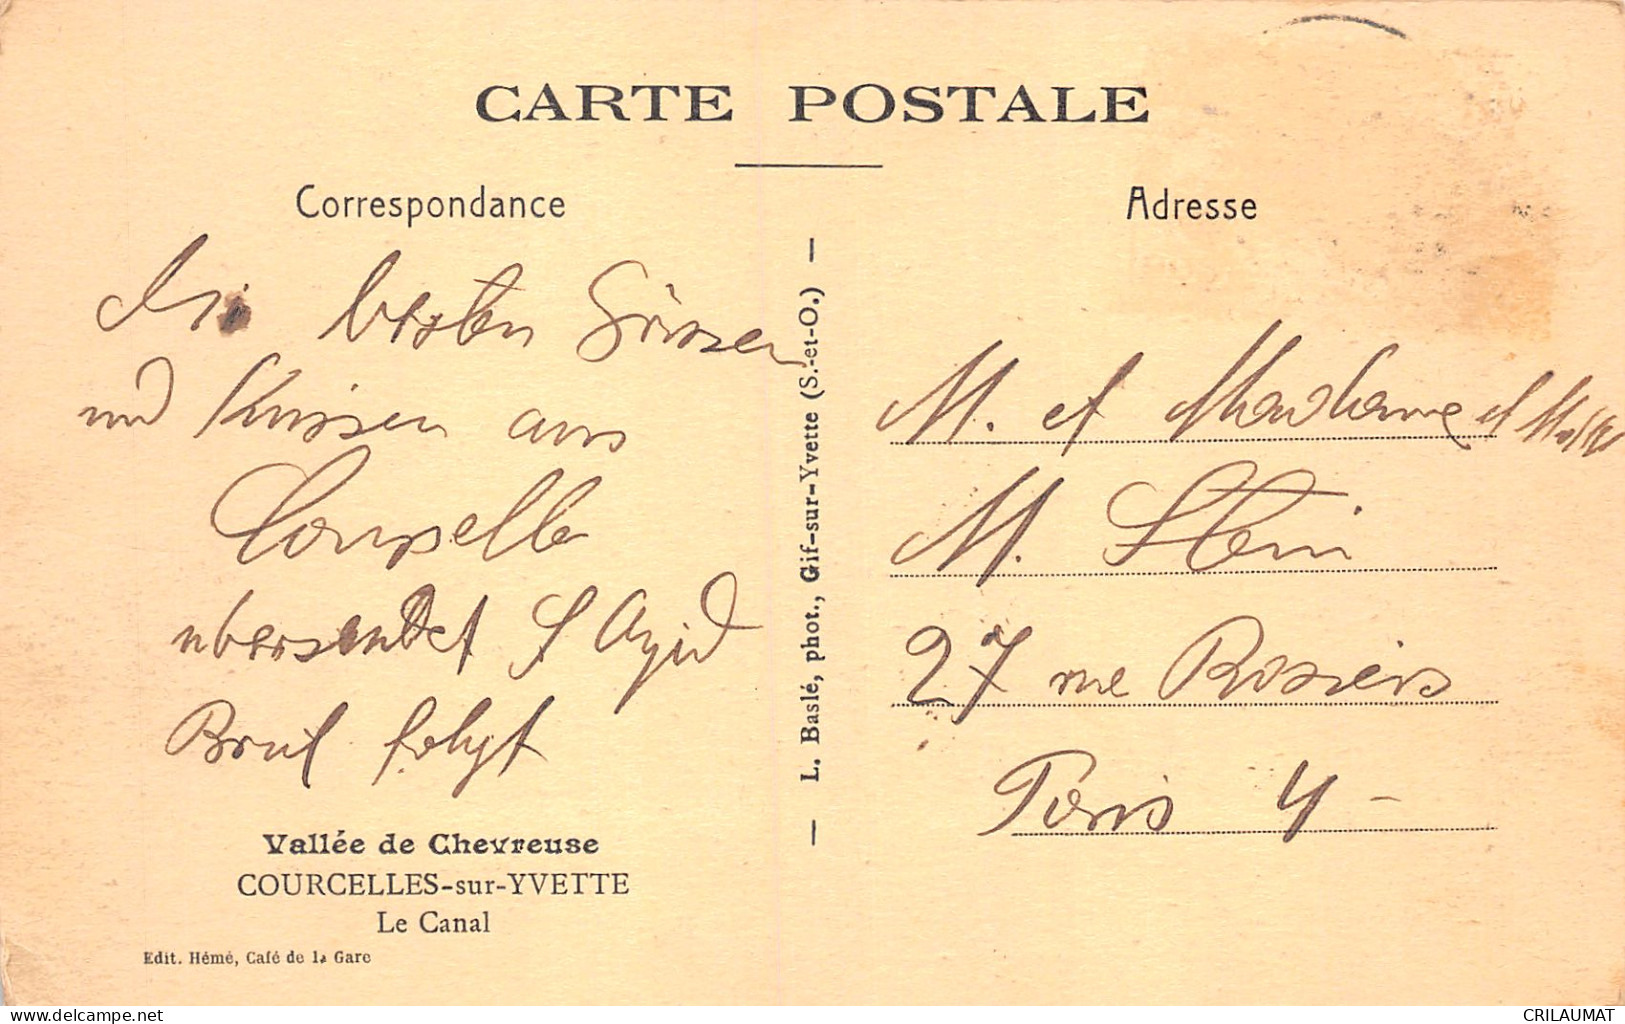 CARTE POSTALE
Correspondance
Die besten Grüssen
und Küssen aus
Courselle
übersendet
Brief folgt
Vallée de Chevreuse
COURCELLES-sur-YVETTE
Le Canal
Edit. Hémé, Café de la Gare
— L. Baslé, phot., Gif-sur-Yvette (S.-et-O.) —
Adresse
M. et Madame et
M. Stein
27 rue Rosiers
Paris 4 -
CRILAUMAT